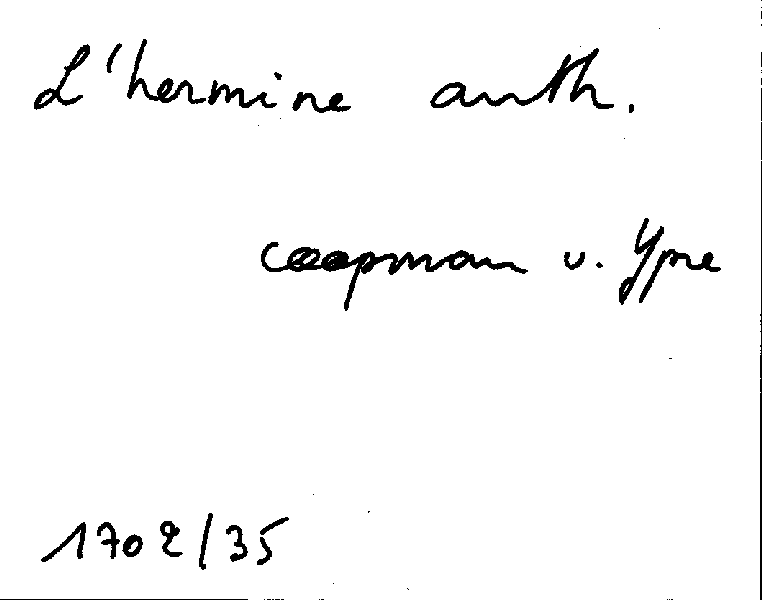 L'hermine auth.
coopman v. Ypre
1702/35